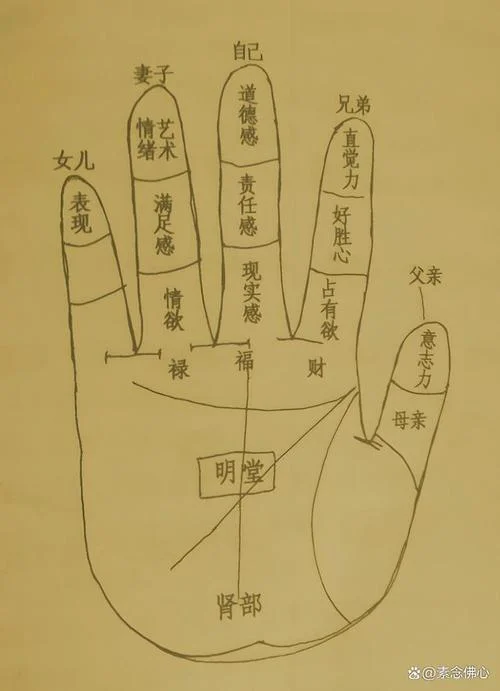 自己
妻子
兄弟
女儿
道德感
情绪
艺术
直觉力
表现
满足感
责任感
好胜心
情欲
现实感
占有欲
父亲
意志力
母亲
禄
福
财
明堂
肾部
百家号/素念佛心